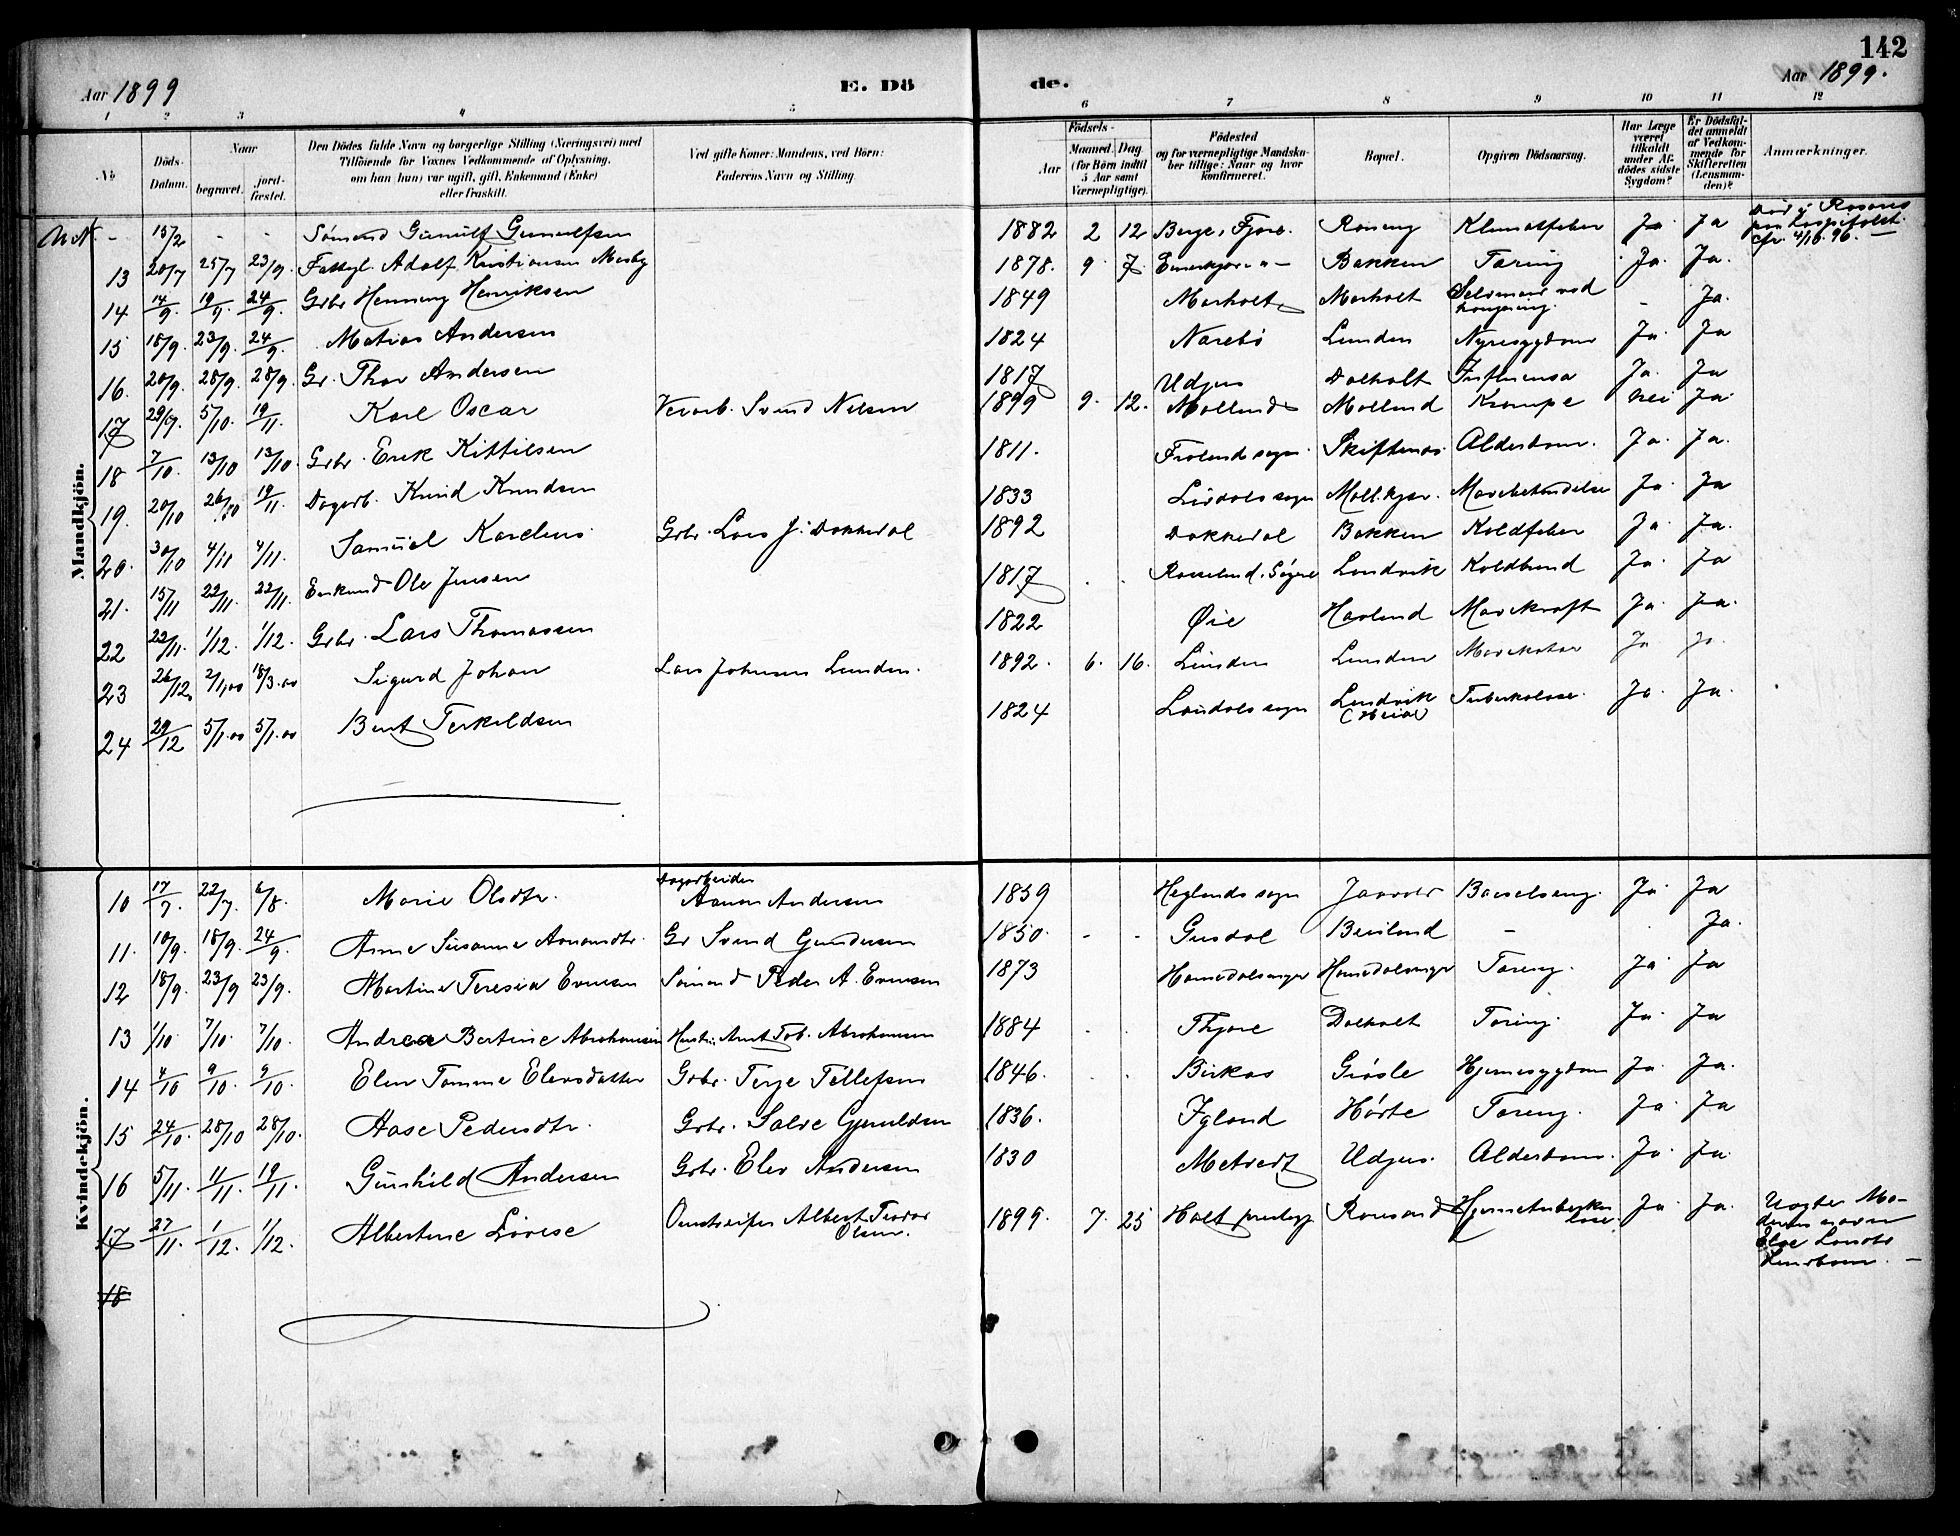 142
Aar 1899
E. Dö
de.
Aar 1899.
1 2 3 4 5 6 7 8 9 10 11 12
No
Döds-Datum.
Naar
begravet.
jord-fæstet.
Den Dödes fulde Navn og borgerlige Stilling (Næringsvei) med
Tilföiende for Voxnes Vedkommende af Oplysning,
om han (hun) var ugift, gift, Enkemand (Enke)
eller fraskilt.
Ved gifte Koner: Mandens, ved Börn:
Faderens Navn og Stilling.
Födsels-
Aar
Maaned. Dag.
(for Börn indtil
5 Aar samt
Værnepligtige).
Födested
og for værnepligtige Mandska-
ber tillige: Naar og hvor
konfirmeret.
Bopæl.
Opgiven Dödsaarsag.
Har Læge
været
tilkaldt
under Af-
dödes sidste
Sygdom?
Er Dödsfal-
det anmeldt
af Vedkom-
mende for
Skifteretten
(Lensman-
den)?
Anmærkninger.
Mandkjön.
- 15/2 - - Sömand Gunulf Gunulfsen 1882 2 12 Berge, Fjære. Klimatfeber Ja Ja
cfr. 4/10. 96.
13 20/7 25/7 23/9. Adolf Kristiansen Mosby 1878. 9 7. Bakken Tæring Ja. Ja.
14 14/9. 19/9. 24/9. Grbr Henning Henriksen 1849 Morholt Morholt Selvmord ved hængning. - Ja.
15 18/9. 23/9. 24/9. Matias Andersen 1824 Narebö Lunden Nyresygdom Ja. Ja
16. 20/9. 28/9. 28/9. Gr. Thor Andersen 1817 Udjus Dalholt Influensa Ja. Ja
17 29/9. 5/10. 19/11. Karl Oscar Svend Nilsen 1899 9. 12. Mollund Mollund Krampe Nei Ja
18 7/10. 13/10 13/10. Grbr. Erik Kittilsen 1811. Froland sogn Skiftenes Alderdom. Ja. Ja.
19. 20/10 26/10 19/11 Dagarb. Knud Knudsen 1833 Mavebetændelse Ja. Ja
20. 30/10 4/11 4/11. Samuel Karelius Grbr. Lars J. Dokkedal 1892 Dokkedal Bakken Koldfeber Ja. Ja.
21. 15/11 22/11. 22/11. Enkemd Ole Jensen 1817 . . Landvik Koldbrand Ja. Ja
22 22/11. 1/12. 1/12. Grbr. Lars Thomassen 1822 Øie Havlund Mavekræft Ja. Ja.
23 26/12. 2/1.00 18/3.00 Sigurd Johan Lars Johnsen Lunden. 1892. 6. 16. Lunden Lunden Ja Ja
24 29/12 5/1.00 5/1.00 Bent Terkeldsen 1824 Landvik Tuberkulose. Ja. Ja.
Kvindekjön.
10 17/7. 22/7. 6/8. Marie Olsdtr. Dagarbeider Aanon Andersen 1859 Høglands sogn Barselseng. Ja. Ja
11. 10/9. 18/9. 24/9. Anne Susanne Aanonsdtr. Gr Svend Gundersen 1850. - - Gusdal Beisland - Ja.
12 18/9. 23/9 23/9. Martine Teresia Evensen Sömand Peder A. Evensen 1873 Homedalsmyr Homedalsmyr Tæring. Ja. Ja
13 1/10. 7/10. 7/10. Andrea Bertine Abrahamsen Arnt Tob. Abrahamsen 1884 . . Thjore Dalholt Tæring. Ja. Ja
14 4/10 9/10. 9/10. Elen Tomine Elevsdatter Grbr. Terje Tellefsen 1846. . . Birkas Grösle Hjernesygdom Ja. Ja.
15 24/10. 28/10 28/10. Aase Pedersdtr. Grbr. Salve Gjeruldsen 1836. Igland Hörte Tæring. Ja. Ja
16 5/11. 11/11. 19/11. Gunhild Andersen Grbr. Elev Andersen 1830 Udjus. Alderdom. Ja. Ja.
17 27/11. 1/12. 1/12. Albertine Lovise Albert Teodor Olsen. 1899. 7. 25 Holt præstegj Roresand Hjernetuberku-lose. Ja. Ja. Uægte Mo-
derens navn
18